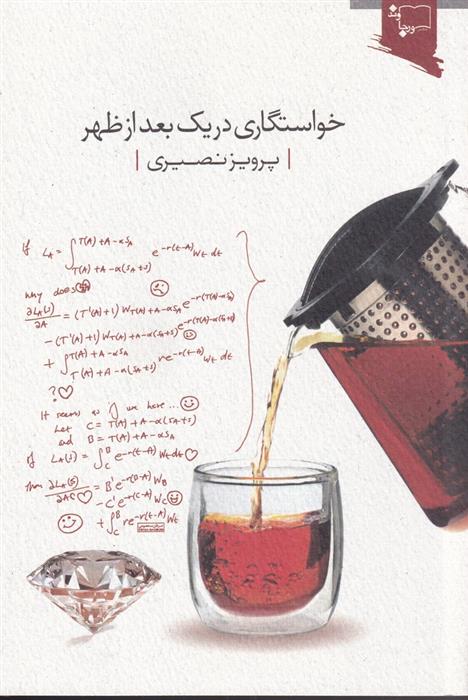 ورجاوند
خواستگاری در یک بعد از ظهر
| پرویز نصیری |
If L_A = ∫_{T(A)+A-α(S_A+s)}^{T(A)+A-αS_A} e^{-r(t-A)} W_t dt
why does
∂L_A(s)/∂A = (T'(A)+1) W_{T(A)+A-αS_A} e^{-r(T(A)-αS_A)}
- (T'(A)+1) W_{T(A)+A-α(S_A+s)} e^{-r(T(A)-α(S_A+s))}
+ ∫_{T(A)+A-α(S_A+s)}^{T(A)+A-αS_A} r e^{-r(t-A)} W_t dt
?
It seems as if we have ...
Let C = T(A)+A-α(S_A+s)
and B = T(A)+A-αS_A
If L_A(s) = ∫_C^B e^{-r(t-A)} W_t dt
Then ∂L_A(s)/∂A = B'e^{-r(B-A)} W_B
- C'e^{-r(C-A)} W_C
+ ∫_C^B r e^{-r(t-A)} W_t